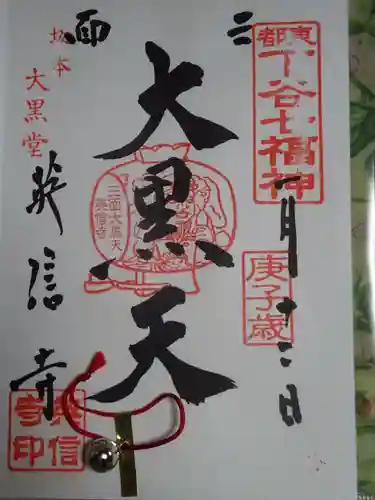 東都
下谷七福神
二
一月十二日
庚子歳
大黒天
三面大黒天
英信寺
面
印
坂本
大黒堂
英信寺
英信
寺印